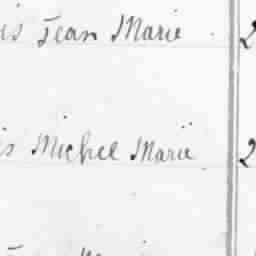 is Jean Marie 2
is Michel Marie 2